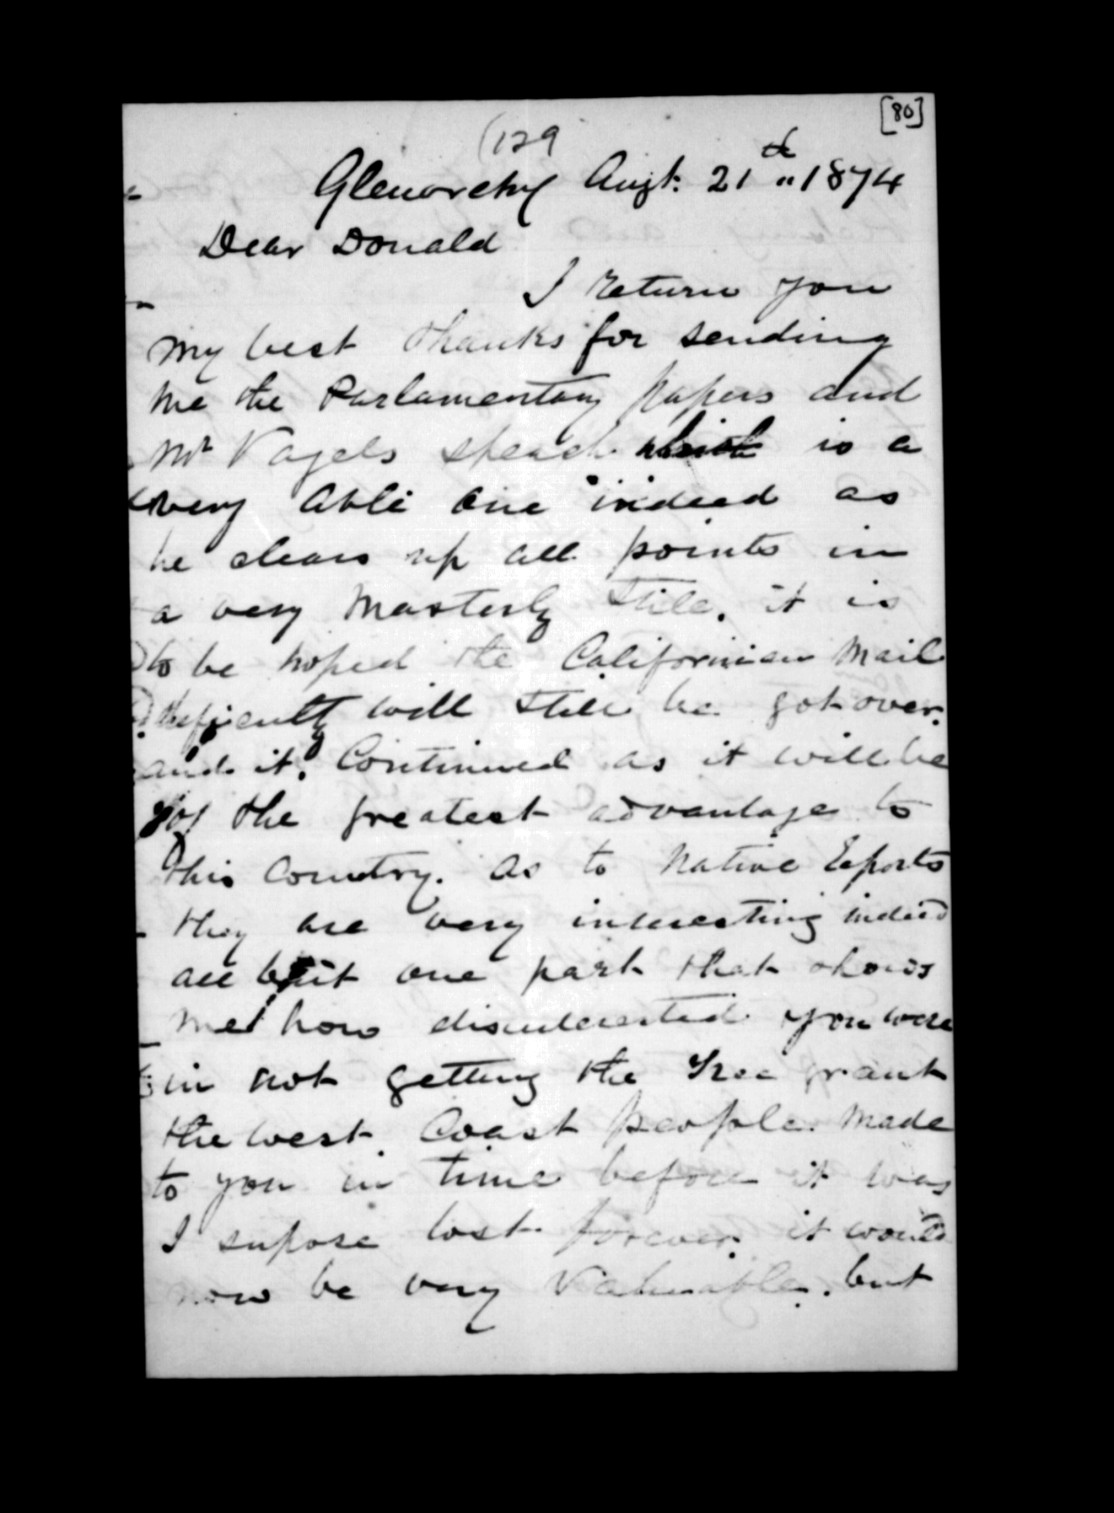 [80]
(129
Glenorchy Augt. 21th "1874
Dear Donald
I return you
my best thanks for sending
me the Parlamentary papers and
Mr Vogels speach which is a
very able one indeed as
he clears up all points in
a very Masterly Stile. it is
to be hoped the Californian Mail
will still be got over.
and it. Continued as it will be
of the greatest advantage to
this Country. As to Native Reports
they are very interesting indeed
all but one part that shows
me how disinterested you were
in not getting the Free grant
the West Coast people made
to you in time before it was
I supose lost forever. it would
now be very Valuable. but